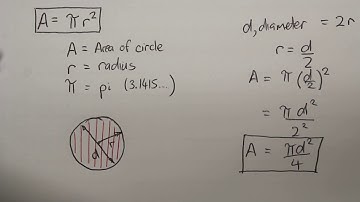 A = πr²
A = Area of circle
r = radius
π = pi (3.1415...)
d
r
d, diameter = 2r
r = d/2
A = π(d/2)²
= πd²/2²
A = πd²/4